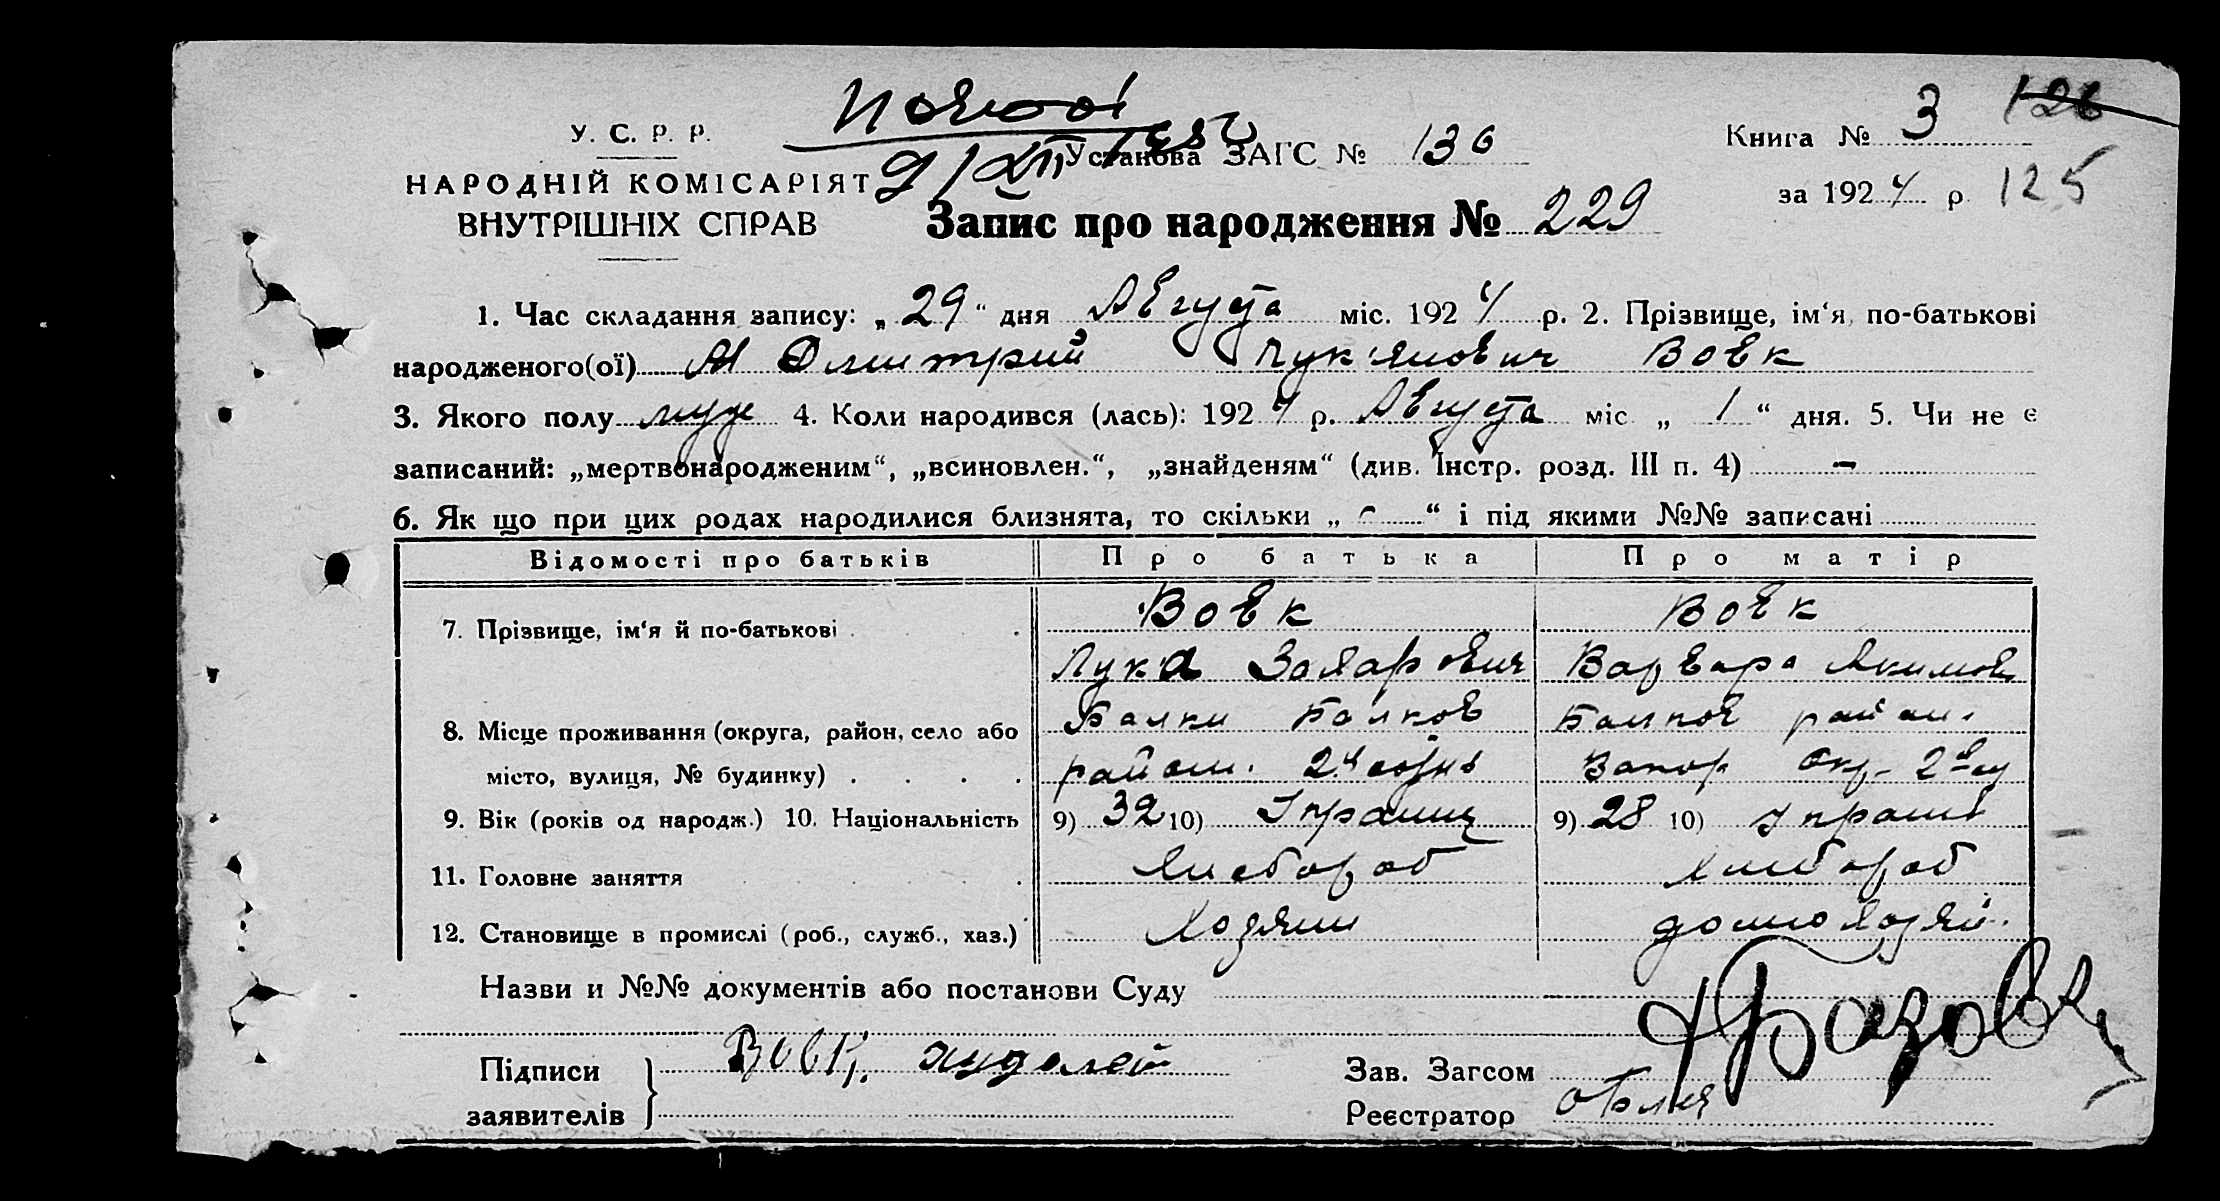 У. С. Р. Р.
НАРОДНІЙ КОМІСАРІЯТ
ВНУТРІШНІХ СПРАВ
Установа ЗАГС № 136
Книга № 3 126
за 1924 р. 125
Запис про народження № 229
1. Час складання запису: „ 29 “ дня Августа міс. 1924 р. 2. Прізвище, ім‘я, по-батькові
народженого(ої) Дмитрий Лук'янович Вовк
3. Якого полу муж 4. Коли народився (лась): 1924 р. Августа міс. „ 1 “ дня. 5. Чи не є
записаний: „мертвонародженим“, „всиновлен.“, „знайденям“ (див. Інстр. розд. III п. 4) –
6. Як що при цих родах народилися близнята, то скільки „ - “ і під якими №№ записані
Відомості про батьків Про батька Про матір
7. Прізвище, ім‘я й по-батькові Вовк Вовк
Лука Захарович Варвара Якимов
8. Місце проживання (округа, район, село або Балки Балков Балков район.
місто, вулиця, № будинку) район. Запор Окр.
9. Вік (років од народж.) 10. Національність 9) 32 10) Украинц 9) 28 10) Украин
11. Головне заняття Хлебороб Хлебороб
12. Становище в промислі (роб., служб., хаз.) Хозяин домохозяй.
Назви и №№ документів або постанови Суду
Підписи Вовк.
заявителів
Зав. Загсом
Реєстратор